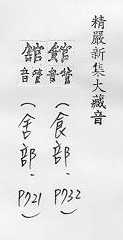 精嚴新集大藏音
館官
音管
(食部.P732)
舘官
音管
(舍部.P721)